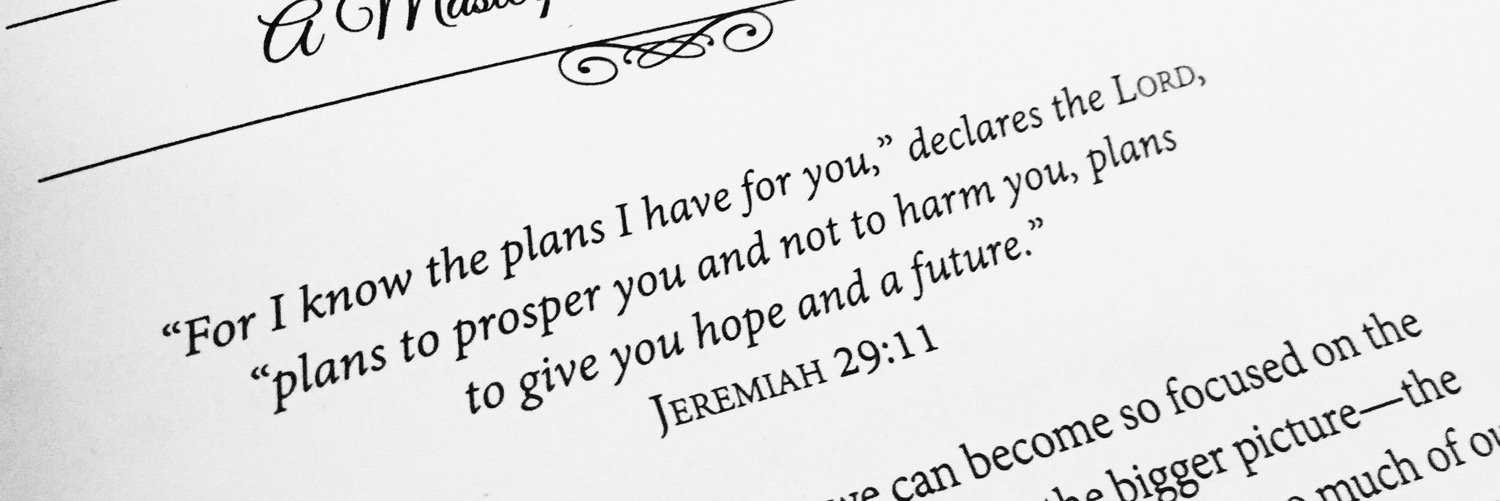 A
“For I know the plans I have for you,” declares the LORD,
“plans to prosper you and not to harm you, plans
to give you hope and a future.”
JEREMIAH 29:11
we can become so focused on the
the bigger picture—the
much of